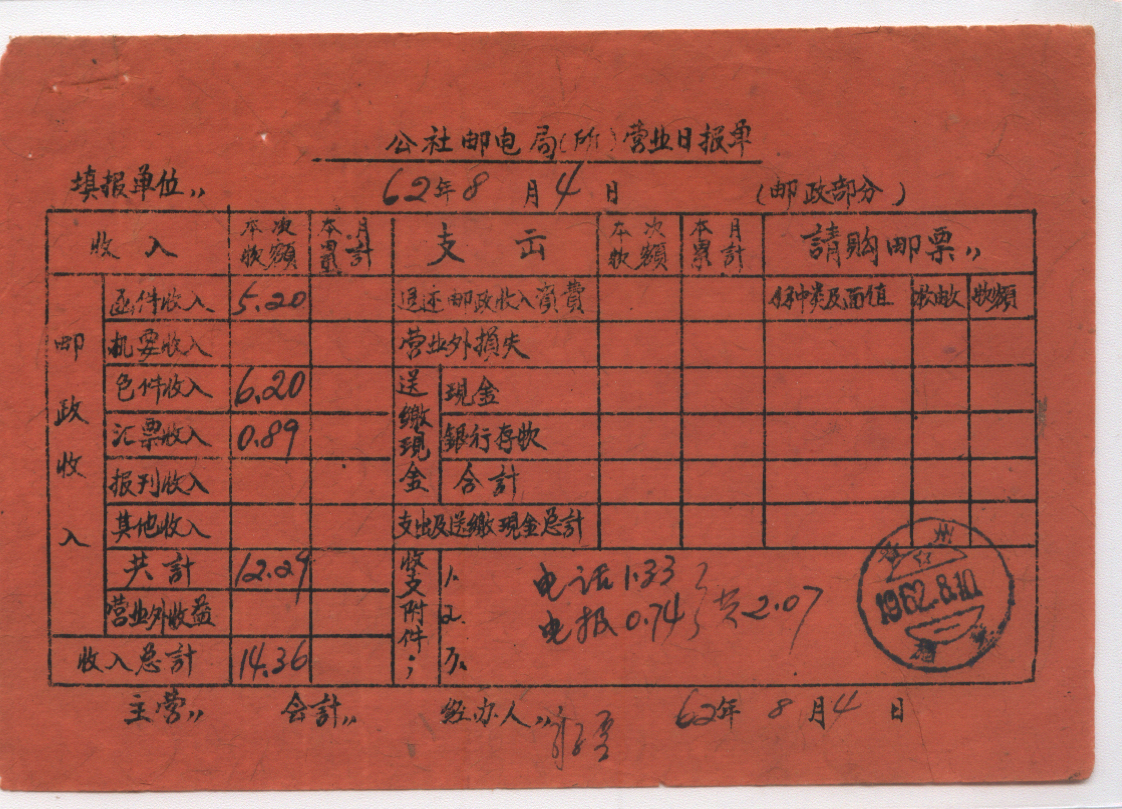 公社邮电局(所)营业日报单
填报单位,, 62年8月4日 (邮政部分)
收入 本次款额 本月累計 支出 本次款额 本月累計 請购邮票,,
邮政收入
函件收入 5.20 退还邮政收入资费 种类及面值 款额
机要收入 营业外損失
包件收入 6.20 送缴現金 現金
汇票收入 0.89 銀行存款
报刊收入 合計
其他收入 支出及送缴現金总計
共計 12.29 收支附件; 1. 电话1.33
营业外收益 2. 电报0.74 共2.07
收入总計 14.36 3.
1962.8.10
主营,, 会計,, 经办人,, 62年8月4日